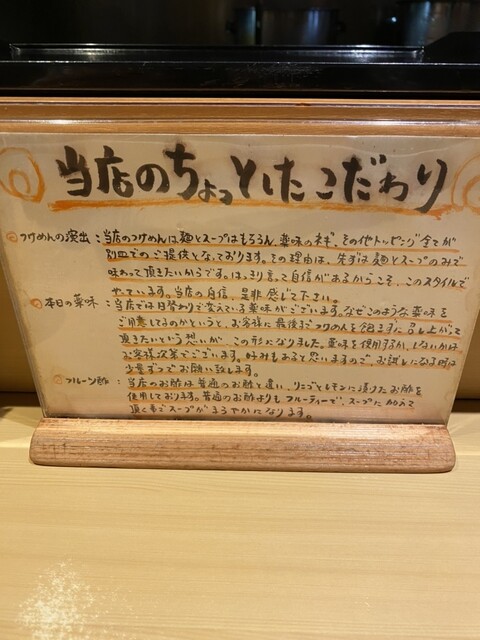 当店のちょっとしたこだわり
つけめんの演出：当店のつけめんは麺とスープはもちろん、薬味のネギ、その他トッピング全てが
別皿でのご提供となっております。その理由は、先ずは麺とスープのみで
味わって頂きたいからです。はっきり言って自信があるからこそ、このスタイルで
やっています。当店の自信、是非感じて下さい。
本日の薬味：当店では日替わりで変えている薬味がございます。なぜこのような薬味を
ご用意してるのかというと、お客様に最後までつけめんを飽きずに召し上がって
頂きたいという想いが、この形になりました。薬味を使用するか、しないかは
お客様次第でございます。好みもあると思いますので、お試しになる時は
少量ずつでお願い致します。
フルーツ酢：当店のお酢は普通のお酢と違い、りんごとレモンに漬けたお酢を
使用しております。普通のお酢よりもフルーティーで、スープに加えて
頂く事でスープがまろやかになります。